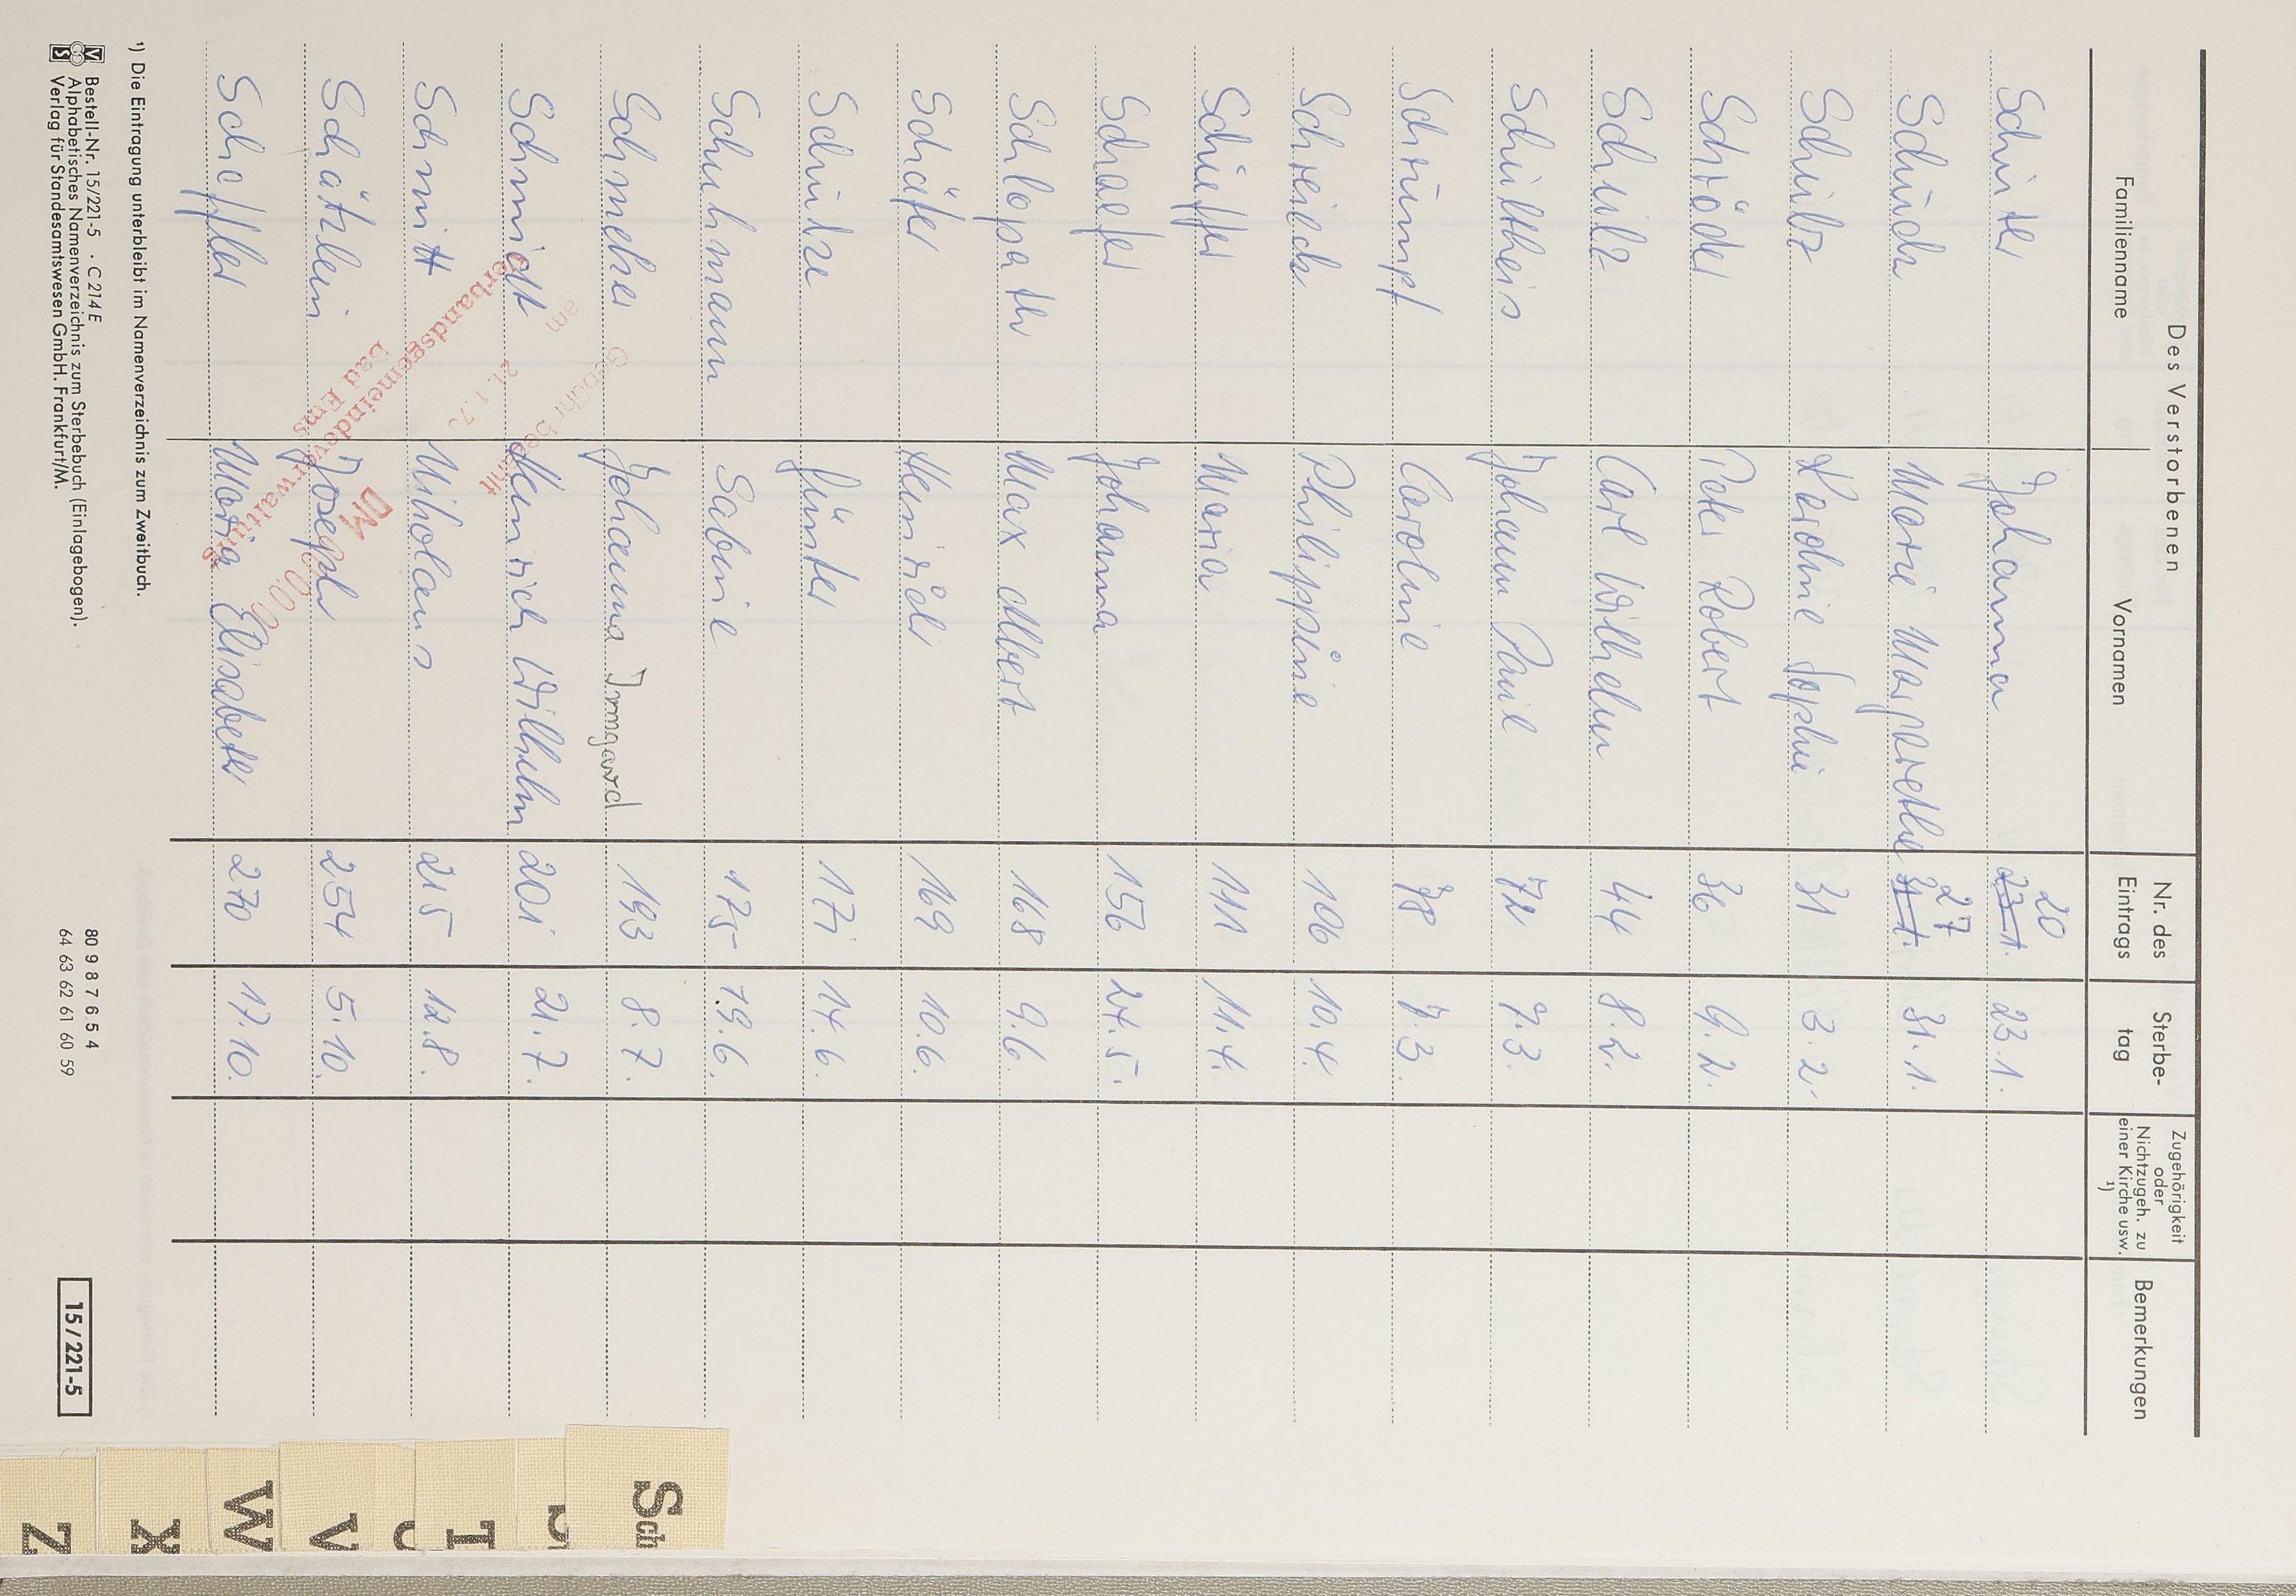 Des Verstorbenen
Familienname Vornamen Nr. des Eintrags Sterbe-tag Zugehörigkeit oder Nichtzugeh. zu einer Kirche usw. ¹) Bemerkungen
Johanna 23.1. 20 23.1.
Schuch Marie Margarethe 31.1. 27 31.1.
Schulz Karoline Sophie 31 3.2.
Schröder Peter Robert 36 9.2.
Schulz Carl Wilhelm 44 8.2.
Schultheis Johann Paul 72 7.3.
Schrumpf Caroline 78 7.3.
Philippine 106 10.4.
Maria 111 11.4.
Schaefer Johanna 156 24.5.
Max Albert 168 9.6.
Schäfer Heinrich 169 10.6.
Schulze Günter 171 14.6.
Schuhmann Sabine 175 19.6.
Johanna Irmgard 193 8.7.
Schmidt Heinrich Wilhelm 201 21.7.
Schmitt Nikolaus 215 12.8.
Schätzlein Joseph 254 5.10.
Scheffler Maria Elisabeth 270 17.10.
Gebühr bezahlt
am 21.1.73
Verbandsgemeindeverwaltung
Bad Ems
DM
¹) Die Eintragung unterbleibt im Namenverzeichnis zum Zweitbuch.
Bestell-Nr. 15/221-5 · C 214 E
Alphabetisches Namenverzeichnis zum Sterbebuch (Einlagebogen).
Verlag für Standesamtswesen GmbH. Frankfurt/M.
80 9 8 7 6 5 4
64 63 62 61 60 59
15/221-5
Sch
T
V
W
X
Z